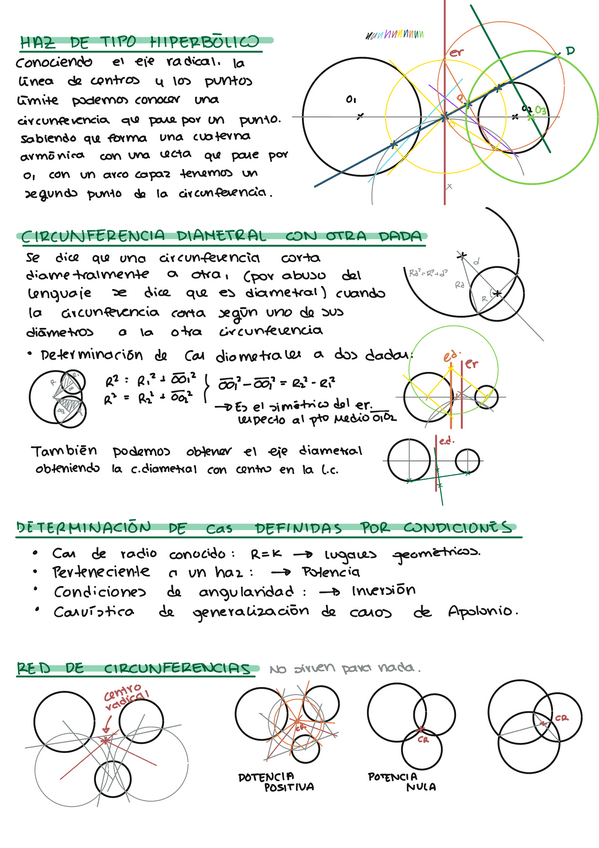 HAZ DE TIPO HIPERBÓLICO
Conociendo el eje radical, la
línea de centros y los puntos
límite podemos conocer una
circunferencia que pase por un punto.
Sabiendo que forma una cuaterna
armónica con una recta que pase por
O1 con un arco capaz tenemos un
segundo punto de la circunferencia.
er
D
O1
O2
O3
P
x
CIRCUNFERENCIA DIAMETRAL CON OTRA DADA
Se dice que una circunferencia corta
diametralmente a otra, (por abuso del
lenguaje se dice que es diametral) cuando
la circunferencia corta según uno de sus
diámetros a la otra circunferencia
Rd²=R²+d²
d
Rd
R
• Determinación de Cas diametrales a dos dadas:
R² = R1² + OO1²
R² = R2² + OO2²
OO1² - OO2² = R2² - R1²
→ Es el simétrico del er.
respecto al pto medio O1O2
e.d.
er
También podemos obtener el eje diametral
obteniendo la c.diametral con centro en la l.c.
e.d.
DETERMINACIÓN DE Cas DEFINIDAS POR CONDICIONES
• Cas de radio conocido: R=K → lugares geométricos.
• Perteneciente a un haz: → Potencia
• Condiciones de angularidad: → Inversión
• Casuística de generalización de casos de Apolonio.
RED DE CIRCUNFERENCIAS No sirven para nada.
centro
radical
CR
POTENCIA
POSITIVA
CR
POTENCIA
NULA
CR